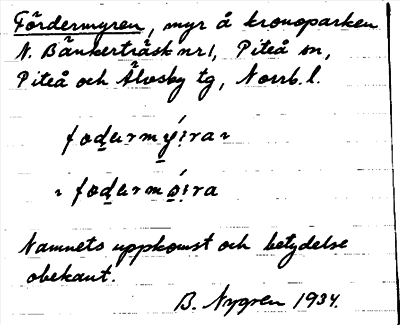 Fördermyren, myr å kronoparken
N. Bänkerträsk nr 1, Piteå sn,
Piteå och Älvsby tg, Norrb. l.
fodermy̱:ran
~ fodermo̱:ra
Namnets uppkomst och betydelse
obekant.
B. Nygren 1934.